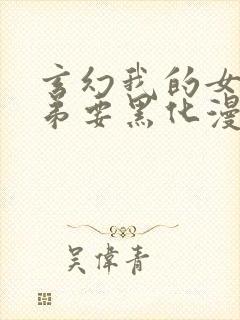 玄幻我的女
弟要黑化漫
吴偉青